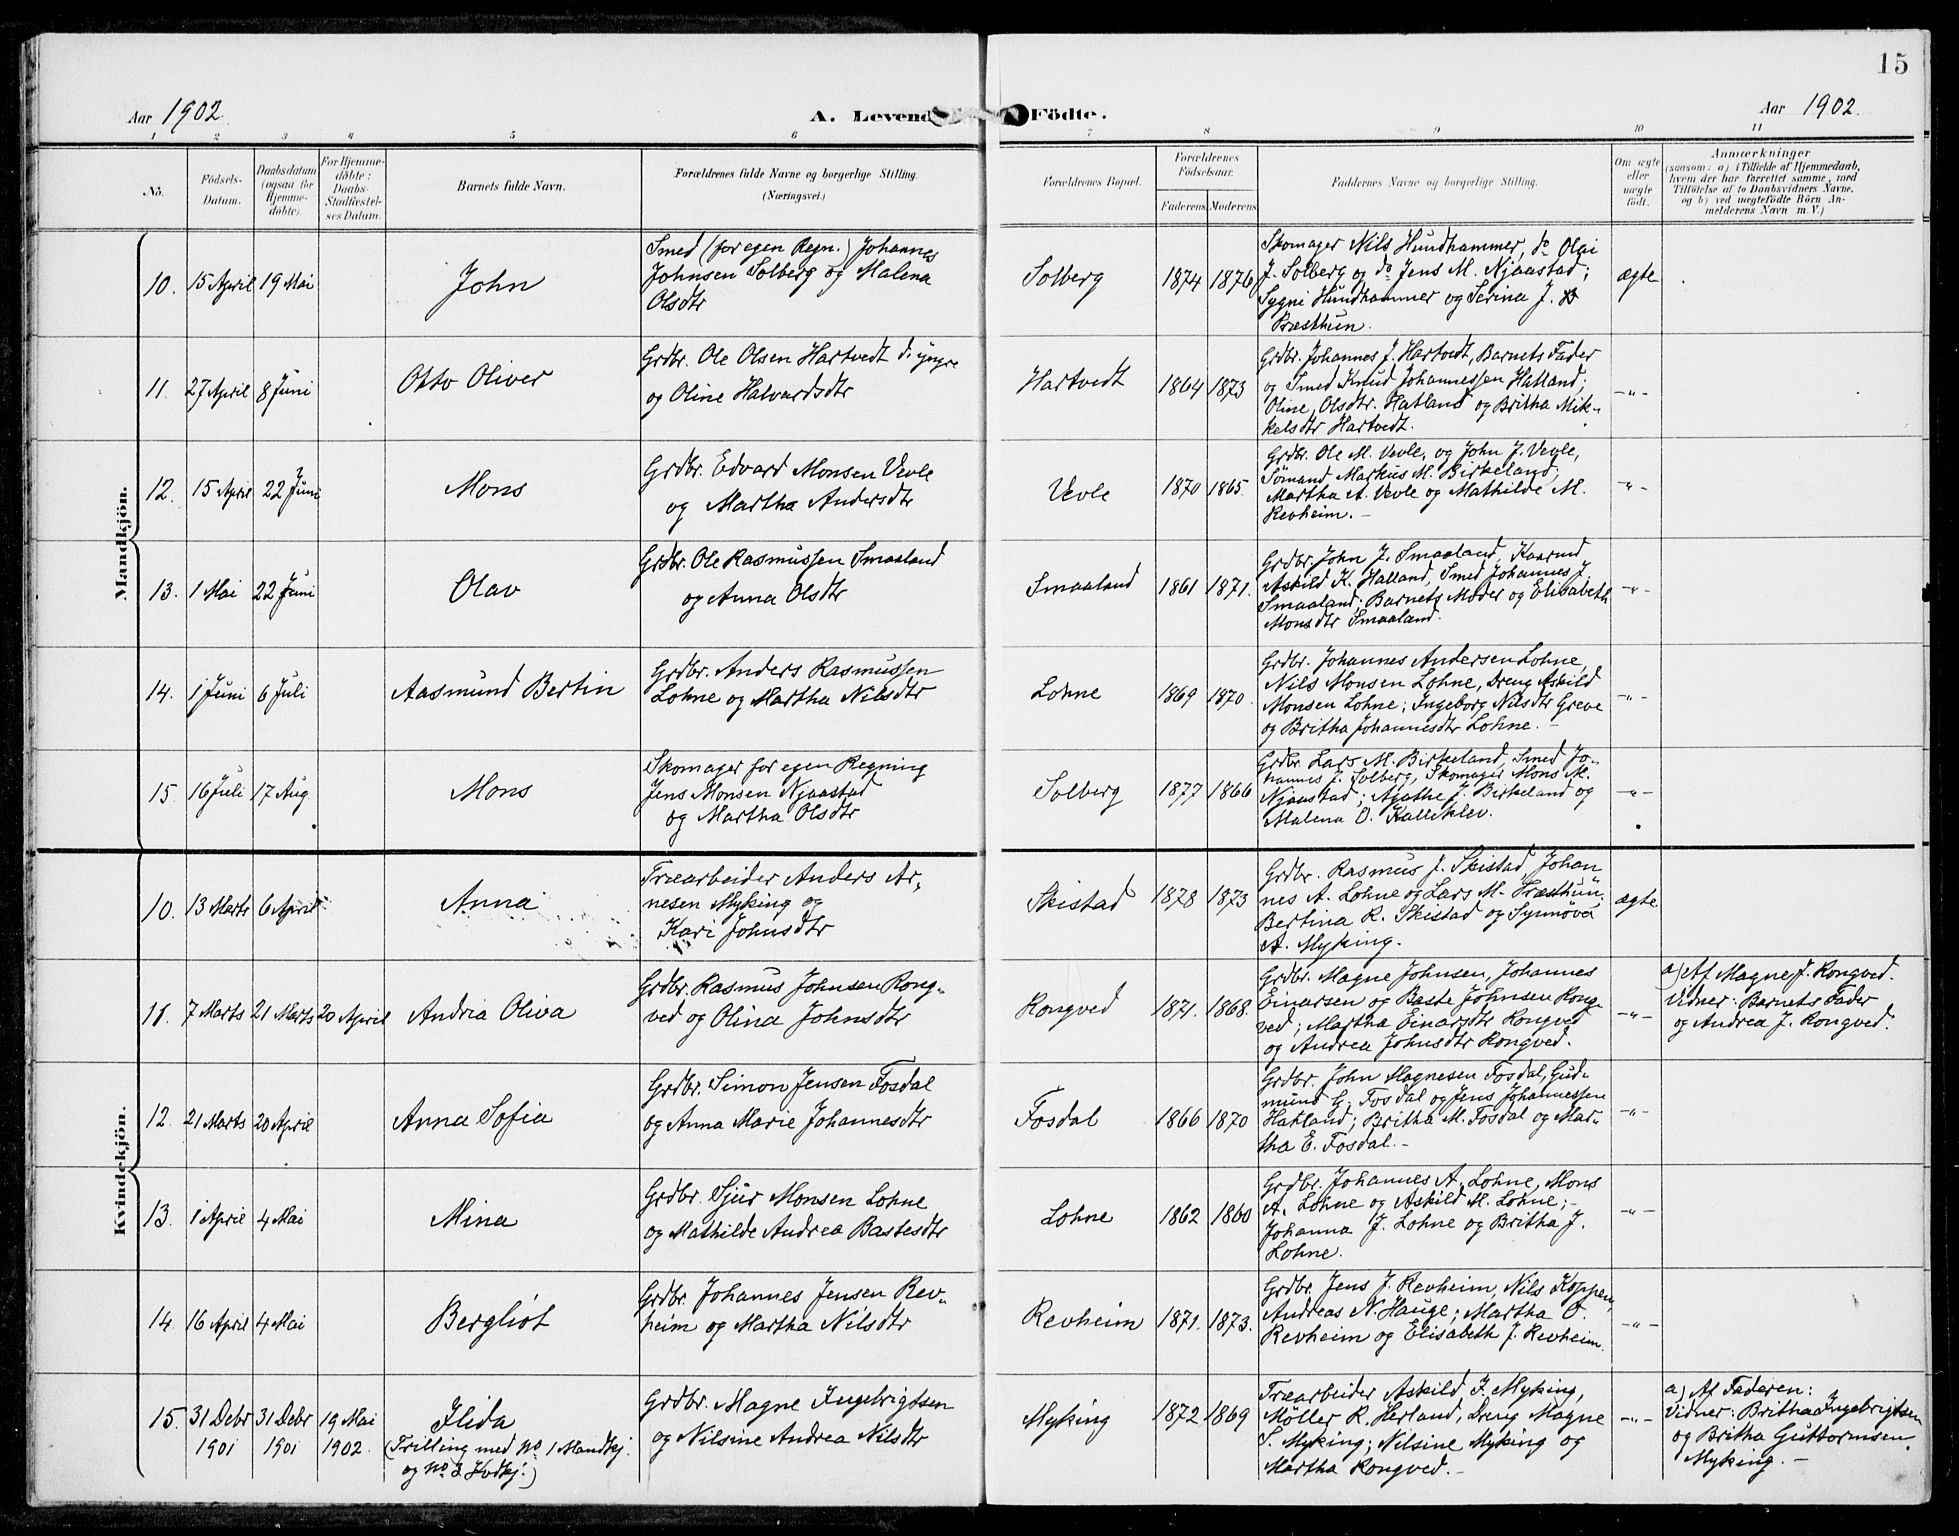 15
Aar 1902.
A. Levend
Födte.
Aar 1902.
1 2 3 4 5 6 7 8 9 10 11
No.
Födsels-
Datum.
Daabsdatum
(ogsaa for
Hjemme-
döbte).
For Hjemme-
döbte:
Daabs-
Stadfæstel-
ses Datum.
Barnets fulde Navn.
Forældrenes fulde Navne og borgerlige Stilling.
(Næringsvei.)
Forældrenes Bopæl.
Forældrenes
Födselsaar.
Faderens.
Moderens.
Faddernes Navne og borgerlige Stilling.
Om ægte
eller
uægte
födt.
Anmærkninger
(saasom: a) i Tilfælde af Hjemmedaab,
hvem der har forrettet samme, med
Tilföielse af to Daabsvidners Navne,
og b) ved uægtefödte Börn An-
melderens Navn m. V.)
Mandkjön.
10. 15 April 19 Mai
John
Smed (for egen Regn.) Johannes
Johnsen Solberg og Malena
Olsdtr
Solberg 1874 1876
Skomager Nils Hundhammer, do Olai
J. Solberg og do Jens M. Njaastad;
Sygni Hundhammer og Serina J.
Præsthun.
ægte
11. 27 April 8 Juni
Otto Oliver
Grdbr. Ole Olsen Hartvedt d. yngre
og Oline Halvardsdtr
Hartvedt 1864 1873
Grdbr. Johannes J. Hartvedt, Barnets Fader
og Smed Knud Johannessen Hatland;
Oline Olsdtr. Hatland og Britha Mik-
kelsdtr Hartvedt.
-"-
12. 15 April 22 Juni
Mons
Grdbr. Edvard Monsen Vevle
og Martha Andersdtr
Vevle 1870 1865.
Grdbr. Ole M. Vevle, og John J. Vevle,
Sömand Markus M. Birkeland;
Martha A. Vevle og Mathilde M.
Revheim. -
-"-
13. 1 Mai 22 Juni
Olav
Grdbr. Ole Rasmussen Smaaland
og Anna Olsdtr
Smaaland 1861 1871.
Grdbr. John J. Smaaland, Kaarmd
Askild K. Halland, Smed Johannes J.
Smaaland; Barnets Moder og Elisabeth
Monsdtr Smaaland.
-"-
14. 1 Juni 6 Juli
Aasmund Bertin
Grdbr. Anders Rasmussen
Lohne og Martha Nilsdtr
Lohne 1869 1870.
Grdbr. Johannes Andersen Lohne,
Nils Monsen Lohne, Dreng Askild
Monsen Lohne; Ingeborg Nilsdtr Greve
og Britha Johannesdtr Lohne. -
-"-
15. 16 Juli 17 Aug
Mons
Skomager for egen Regning
Jens Monsen Njaastad
og Martha Olsdtr
Solberg 1877 1866
Grdbr. Lars M. Birkeland, Smed Jo-
hannes J. Solberg, Skomager Mons M.
Njaastad; Agathe J. Birkeland og
Malena O. Kalleklev.
-"-
Kvindekjön.
10. 13 Marts 6 April
Anna
Træarbeider Anders Ar-
nesen Myking og
Kari Johnsdtr
Skistad 1878 1873
Grdbr. Rasmus J. Skistad Johan
nes A. Lohne og Lars M. Træsthun;
Bertina R. Skistad og Synnöva
A. Myking.
ægte
11. 7 Marts 21 Marts 20 April
Andria Oliva
Grdbr. Rasmus Johnsen Rong-
ved og Olina Johnsdtr
Rongved 1871. 1868.
Grdbr. Magne Johnsen, Johannes
Einarsen og Baste Johnsen Rong-
ved; Martha Einarsdtr Rongved
og Andrea Johnsdtr Rongved.
-"-
a) Af Magne J. Rongved.
Vidner: Barnets Fader
og Andrea J. Rongved.
12. 21 Marts 20 April
Anna Sofia
Grdbr. Simon Jensen Fosdal
og Anna Marie Johannesdtr
Fosdal 1866 1870
Grdbr. John Magnesen Fosdal, Gud-
mund G. Fosdal og Jens Johannessen
Hatland; Britha M. Fosdal og Mar-
tha E. Fosdal. -
-"-
13. 1 April 4 Mai
Mina
Grdbr. Sjur Monsen Lohne
og Mathilde Andrea Bastesdtr
Lohne 1862 1860
Grdbr. Johannes A. Lohne, Mons
A. Lohne og Askild M. Lohne; -
Johanna J. Lohne og Britha J.
Lohne.
-"-
14. 16 April 4 Mai
Bergliot
Grdbr. Johannes Jensen Rev-
heim og Martha Nilsdtr
Revheim 1871. 1873.
Grdbr. Jens J. Revheim, Nils Koppen,
Andreas N. Hauge; Martha O.
Revheim og Elisabeth J. Revheim.
-"-
15. 31 Debr 31 Debr 19 Mai
1901 1901 1902.
Ilida
(Trilling med No 1 Mandkj.
og No 3 Kvdkj.)
Grdbr. Magne Ingebrigtsen
og Nilsine Andrea Nilsdtr
Myking 1872 1869
Træarbeider Askild I. Myking,
Möller R. Herland, Dreng Magne
S. Myking; Nilsine Myking og
Martha Rongved. -
-"-
a) Af Faderen:
Vidner: Britha Ingebrigtsen
og Britha Guttormsen
Myking. -